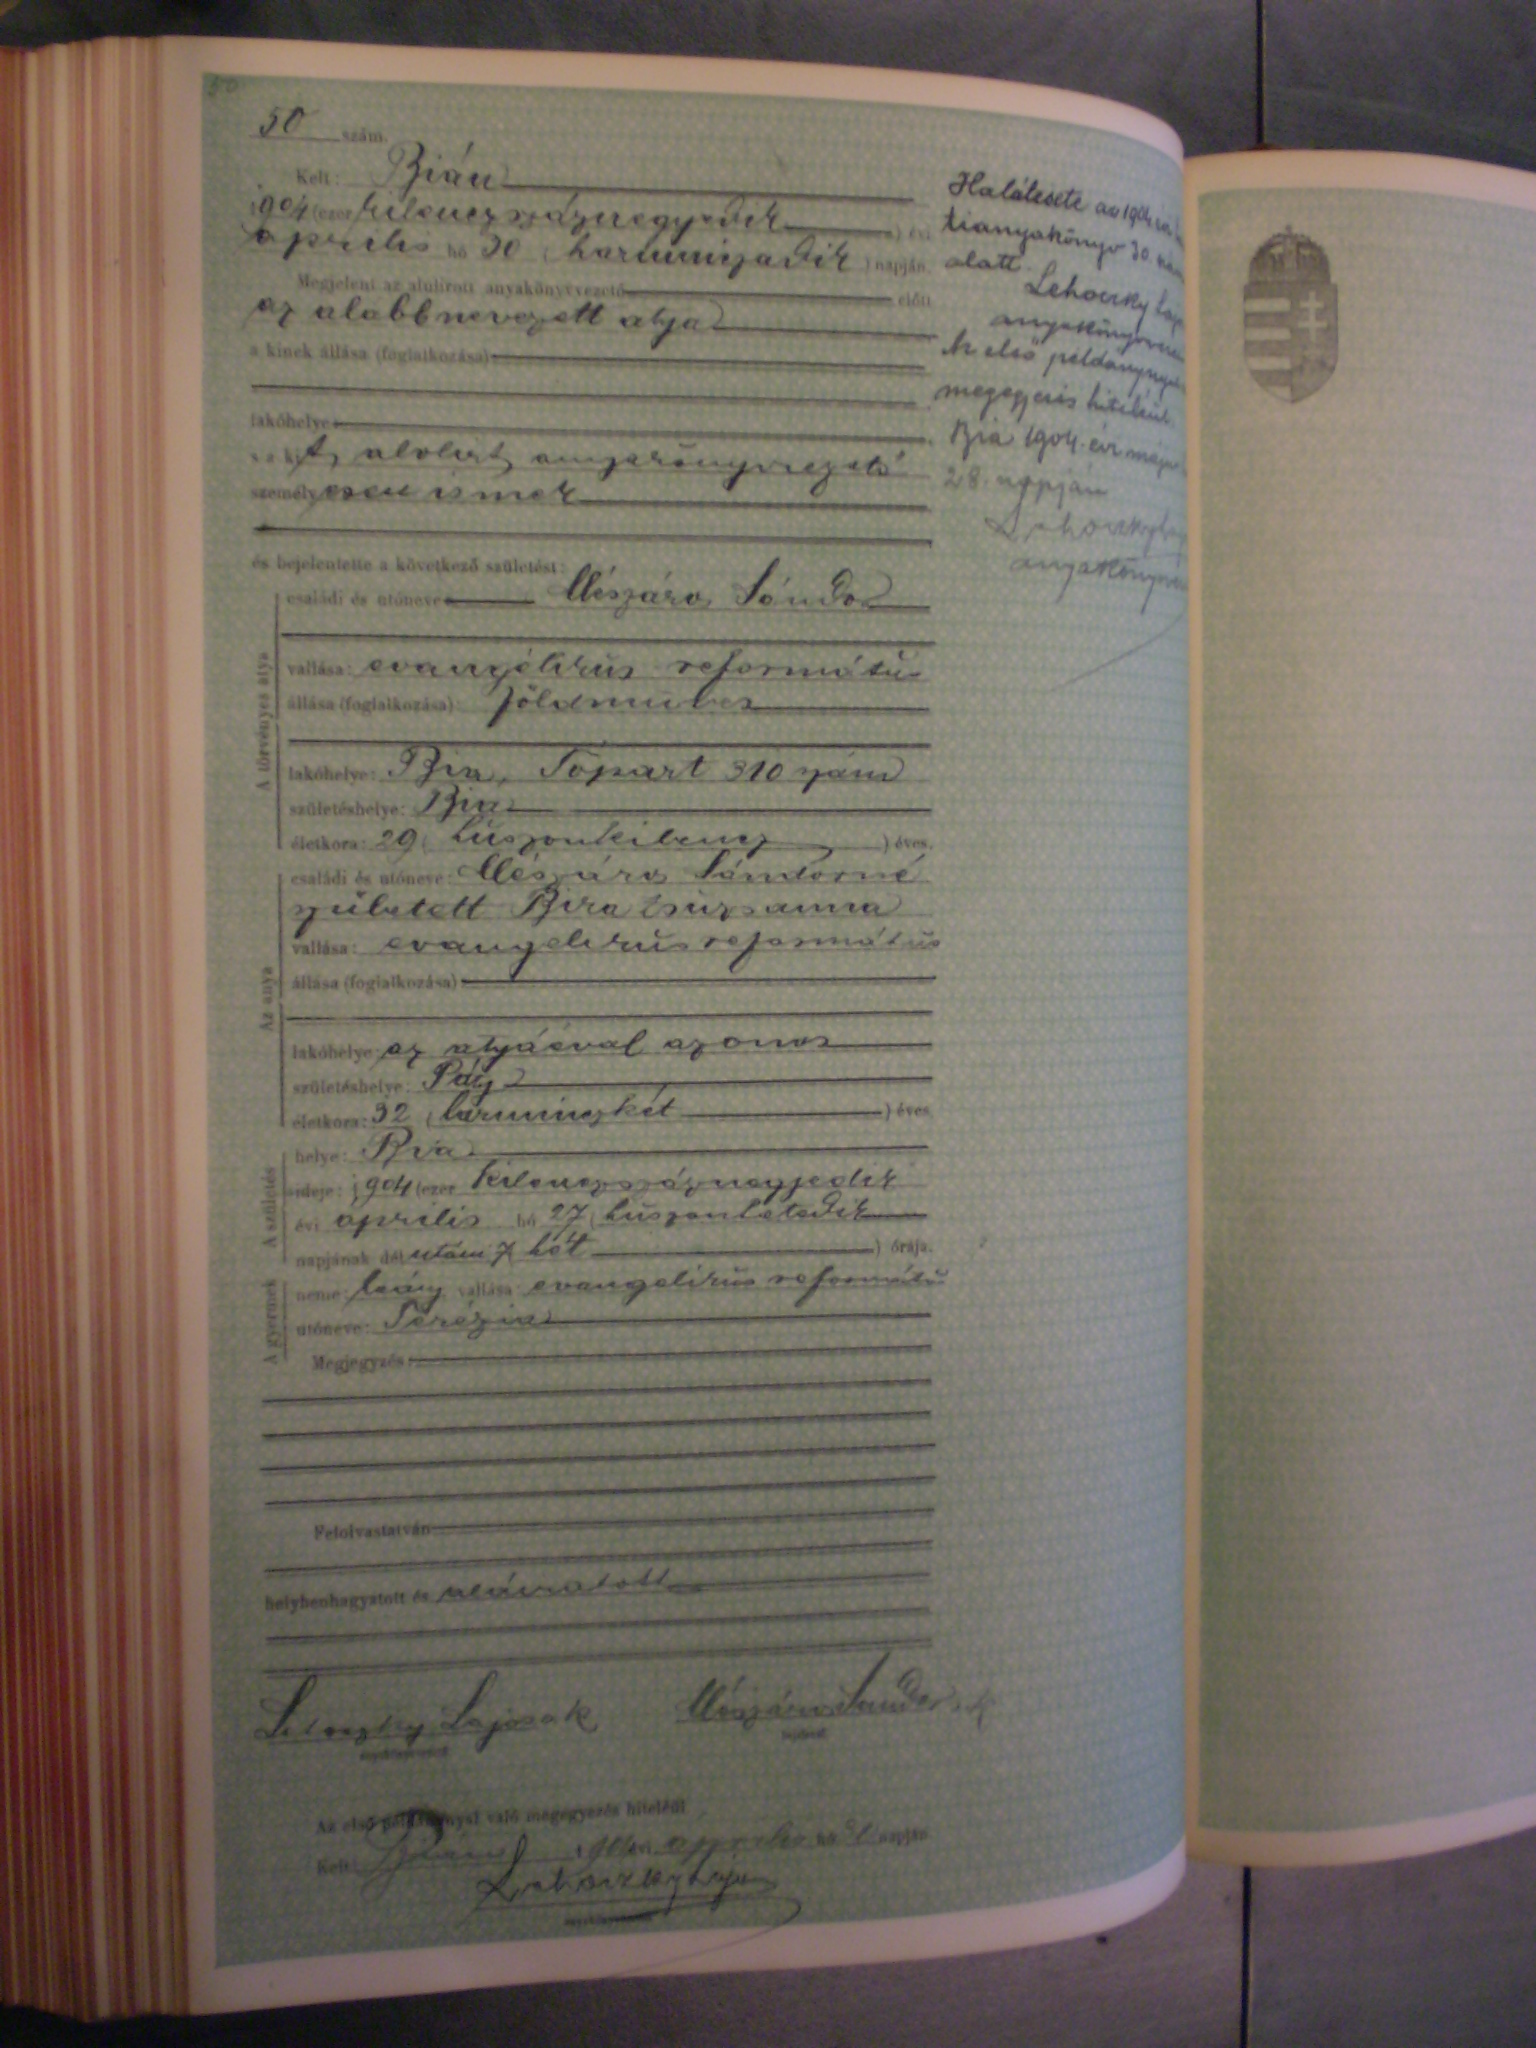 50
50 szám.
Kelt: Bián
1904 (ezer kilenczszáznegyedik) évi
április hó 30 (harminczadik) napján.
Megjelent az alulirott anyakönyvvezető előtt
az alább nevezett atya
a kinek állása (foglalkozása)
lakóhelye
Az alolirt anyakönyvvezető
személyesen ismer
és bejelentette a következő születést:
A törvényes atya
családi és utóneve Mészáros Sándor
vallása: evangélikus református
állása (foglalkozása) földmuves
lakóhelye: Bia, Tópart 310 szám
születéshelye: Bia
életkora: 29 (huszonkilencz) éves.
Az anya
családi és utóneve: Mészáros Sándorné
született Bira Zsuzsanna
vallása: evangelikus református
állása (foglalkozása)
lakóhelye az atyáéval azonos
születéshelye: Páty
életkora: 32 (harminczkét) éves
A születés
helye: Bia
ideje: 1904 (ezer kilenczszáznegyedik
évi április hó 27 (huszonhetedik
napjának dél utáni 7 hét) órája.
A gyermek
neme: leány vallása: evangelikus református
utóneve: Terézia
Megjegyzés:
Felolvastatván
helybenhagyatott és aláiratott
Lehoczky Lajos ak
Mészáros Sándor
Az első példánynyal való megegyezés hiteléül
Kelt: Bián 1904 évi április hó napján
Lehoczky Lajos
Halálesete az 1904
anyakönyv 30.
alatt.
Lehoczky
Az első
megegyezés hiteléül
Bia 1904. évi
28. napján
Lehoczky